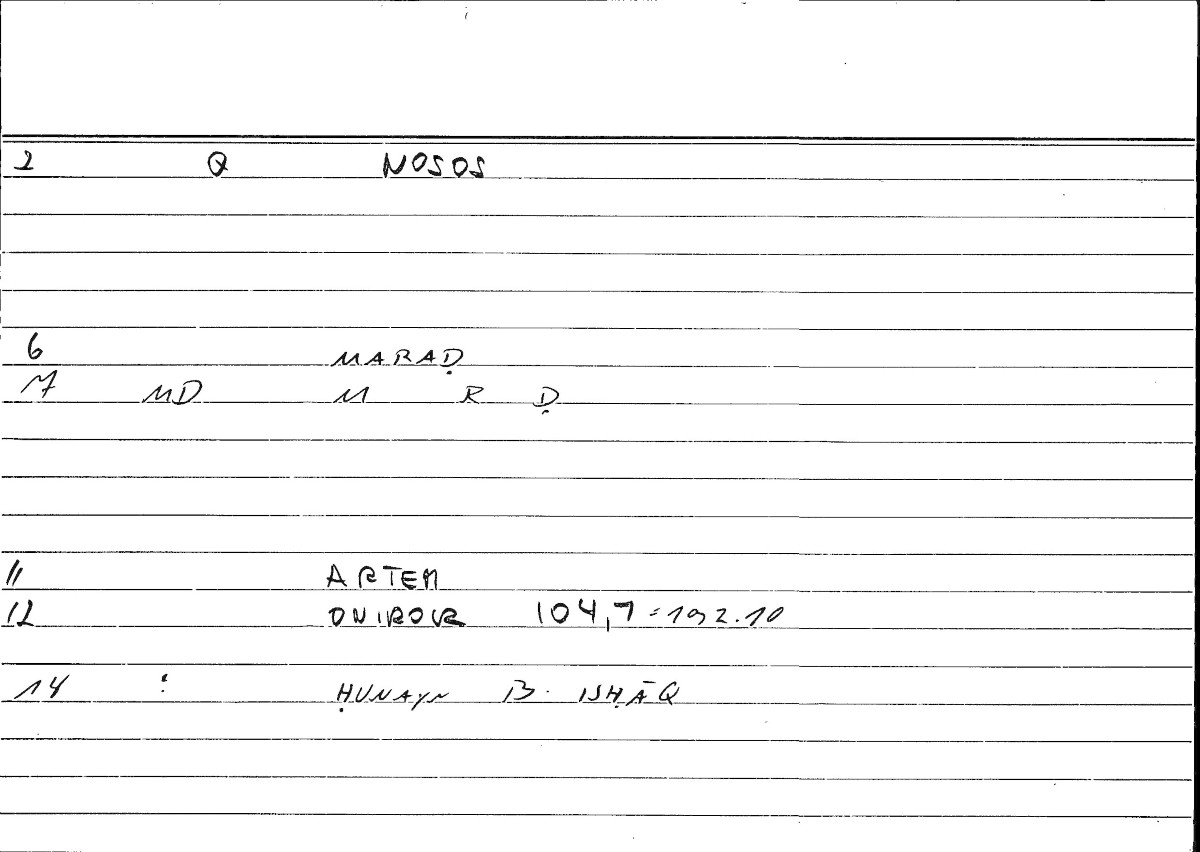 2 Q NOSOS
6 MARAḌ
7 MD M R Ḍ
11 ARTEM
12 ONIROCR 104,7 = 192.10
14 : ḤUNAYN B. ISḤĀQ